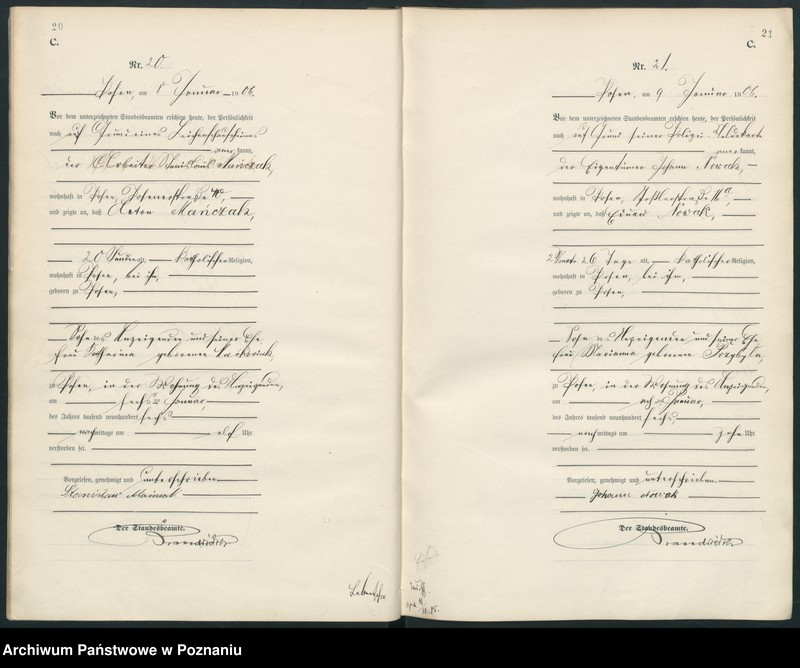 20
C.
Nr. 20
Posen, am 8 Januar 1906.
Vor dem unterzeichneten Standesbeamten erschien heute, der Persönlichkeit
nach auf Grund eines Leichenschauscheines
anerkannt,
der Arbeiter Stanislaus Mańczak,
wohnhaft in Posen,
und zeigte an, daß Anton Mańczak,
20 Stunden katholischer Religion,
wohnhaft in Posen, bei ihm,
geboren zu Posen,
Sohn des Anzeigenden und seiner Ehe-
frau Katharina geborene
zu Posen, in der Wohnung des Anzeigenden,
am sechsten Januar,
des Jahres tausend neunhundert sechs
nachmittags um elf Uhr
verstorben sei.
Vorgelesen, genehmigt und unterschrieben
Stanislaw
Der Standesbeamte.
21
C.
Nr. 21.
Posen, am 9 Januar 1906.
Vor dem unterzeichneten Standesbeamten erschien heute, der Persönlichkeit
nach auf Grund seiner Polizei Meldekarte
anerkannt,
der Eigentümer Johann Nowak,
wohnhaft in Posen,
und zeigte an, daß Eduard Nowak,
2 Monate 26 Tage alt, katholischer Religion,
wohnhaft in Posen, bei ihm,
geboren zu Posen,
Sohn des Anzeigenden und seiner Ehe-
frau Marianna geborene Przybyla,
zu Posen, in der Wohnung des Anzeigenden,
am Januar,
des Jahres tausend neunhundert sechs,
mittags um zehn Uhr
verstorben sei.
Vorgelesen, genehmigt und unterschrieben.
Johann Nowak
Der Standesbeamte.
Archiwum Państwowe w Poznaniu